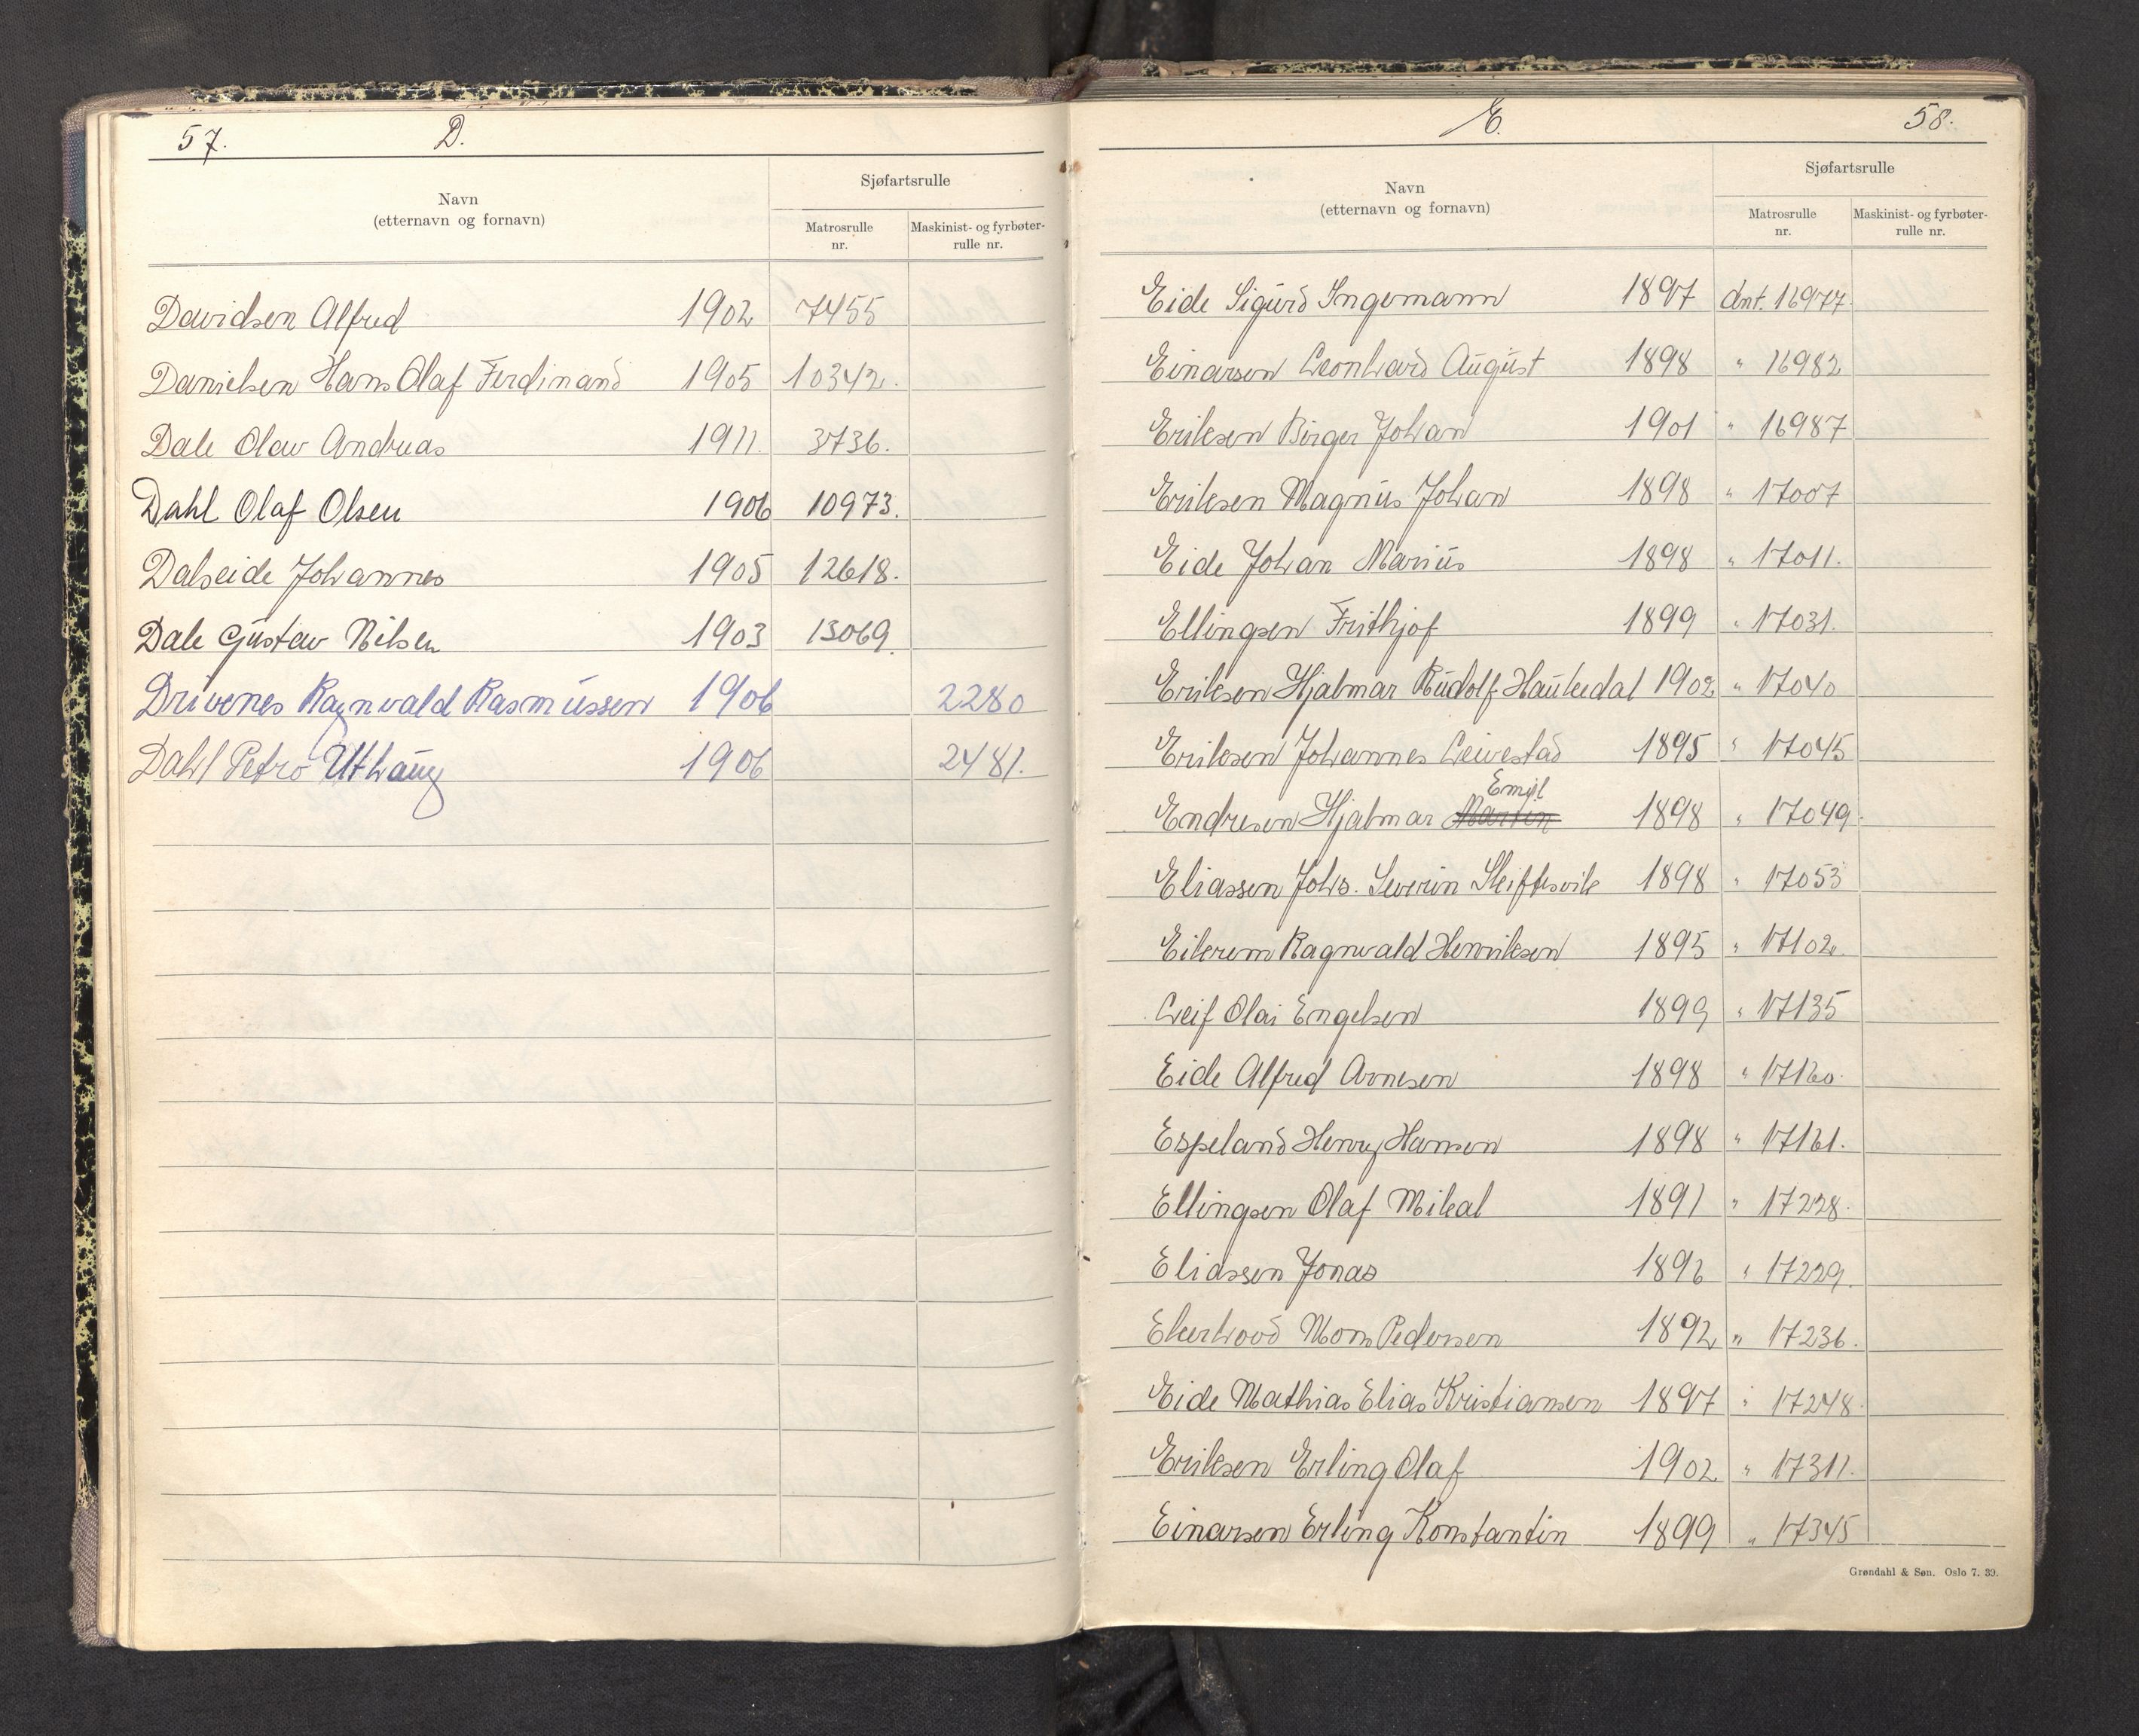 57. D.
Navn
(etternavn og fornavn)
Sjøfartsrulle
Matrosrulle
nr.
Maskinist- og fyrbøter-
rulle nr.
Davidsen Alfred 1902 7455
Danielsen Hans Olaf Ferdinand 1905 10342.
Dale Olav Andreas 1911. 3736.
Dahl Olaf Olsen 1906 10973.
Dalseide Johannes 1905 12618.
Dale Gustav Nilsen 1903 13069.
Drivenes Ragnvald Rasmussen 1906 2280
Dahl Petro Uthaug 1906 2481.
E. 58.
Navn
(etternavn og fornavn)
Sjøfartsrulle
Matrosrulle
nr.
Maskinist- og fyrbøter-
rulle nr.
Eide Sigurd Ingemann 1897 ant. 16977
Einarsen Leonhard August 1898 " 16982
Eriksen Birger Johan 1901 " 16987
Eriksen Magnus Johan 1898 " 17007
Eide Johan Marius 1898 " 17011.
Ellingsen Frithjof 1899 " 17031.
Eriksen Hjalmar Rudolf Haukedal 1902 " 17040
Eriksen Johannes Leivestad 1895 " 17045
Emil
Endresen Hjalmar Martin 1898 " 17049.
Eliassen Johs. Severin Skiftesvik 1898 " 17053
Eikrem Ragnvald Henriksen 1895 " 17102.
Leif Olai Engelsen 1899 " 17135
Eide Alfred Arnesen 1898 " 17160.
Espeland Henry Hansen 1898 " 17161.
Ellingsen Olaf Mikal 1891 " 17228.
Eliassen Jonas 1896 " 17229.
Ekerhovd Mons Pedersen 1892 " 17236.
Eide Mathias Elias Kristiansen 1897 " 17248.
Eriksen Erling Olaf 1902 " 17311.
Einarsen Erling Konstantin 1899 " 17345
Grøndahl & Søn. Oslo 7. 39.